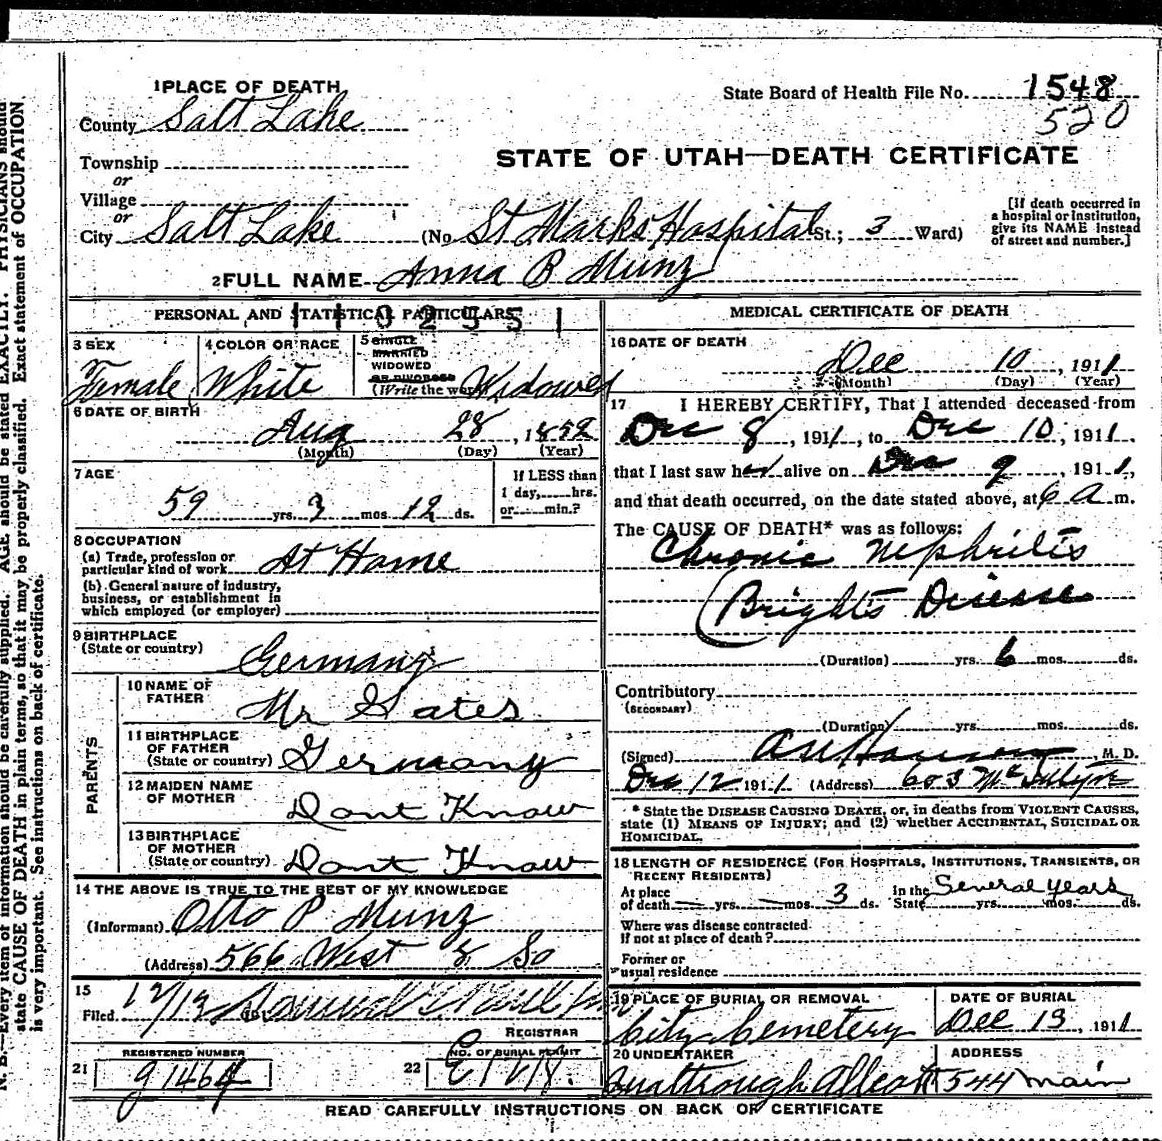 1 PLACE OF DEATH
State Board of Health File No. 1548
520
County Salt Lake
STATE OF UTAH—DEATH CERTIFICATE
Township
or
Village
or
City Salt Lake (No St Marks Hospital St.; 3 Ward)
[If death occurred in
a hospital or institution,
give its NAME instead
of street and number.]
2 FULL NAME Anna B Munz
PERSONAL AND STATISTICAL PARTICULARS
3 SEX
Female
4 COLOR OR RACE
White
5 SINGLE
MARRIED
WIDOWED
OR DIVORCED
(Write the word) Widowed
6 DATE OF BIRTH
Aug 28, 1852
(Month) (Day) (Year)
7 AGE
59 yrs. 3 mos. 12 ds.
If LESS than
1 day, hrs.
or min.?
8 OCCUPATION
(a) Trade, profession or
particular kind of work At Home
(b) General nature of industry,
business, or establishment in
which employed (or employer)
9 BIRTHPLACE
(State or country)
Germany
PARENTS
10 NAME OF
FATHER
Mr Gates
11 BIRTHPLACE
OF FATHER
(State or country) Germany
12 MAIDEN NAME
OF MOTHER
Dont Know
13 BIRTHPLACE
OF MOTHER
(State or country) Dont Know
14 THE ABOVE IS TRUE TO THE BEST OF MY KNOWLEDGE
(Informant) Otto P Munz
(Address) 566 West 8 So
15
Filed 12/13
REGISTRAR
21 REGISTERED NUMBER
22 NO. OF BURIAL PERMIT
MEDICAL CERTIFICATE OF DEATH
16 DATE OF DEATH
Dec 10, 1911
(Month) (Day) (Year)
17 I HEREBY CERTIFY, That I attended deceased from
Dec 8, 1911, to Dec 10, 1911,
that I last saw her alive on Dec 9, 1911,
and that death occurred, on the date stated above, at 6 a m.
The CAUSE OF DEATH* was as follows:
Chronic Nephritis
(Brights Disease
(Duration) yrs. 6 mos. ds.
Contributory
(SECONDARY)
(Duration) yrs. mos. ds.
(Signed) M. D.
Dec 12 1911 (Address) 603
* State the DISEASE CAUSING DEATH, or, in deaths from VIOLENT CAUSES,
state (1) MEANS OF INJURY; and (2) whether ACCIDENTAL, SUICIDAL OR
HOMICIDAL.
18 LENGTH OF RESIDENCE (FOR HOSPITALS, INSTITUTIONS, TRANSIENTS, OR
RECENT RESIDENTS)
At place
of death yrs. mos. 3 ds.
In the
State Several years yrs. mos. ds.
Where was disease contracted
If not at place of death?
Former or
usual residence
19 PLACE OF BURIAL OR REMOVAL
City Cemetery
DATE OF BURIAL
Dec 13, 1911
20 UNDERTAKER
ADDRESS
544 Main
READ CAREFULLY INSTRUCTIONS ON BACK OF CERTIFICATE
N. B.—Every item of information should be carefully supplied. AGE should be stated EXACTLY. PHYSICIANS should
state CAUSE OF DEATH in plain terms, so that it may be properly classified. Exact statement of OCCUPATION
is very important. See instructions on back of certificate.